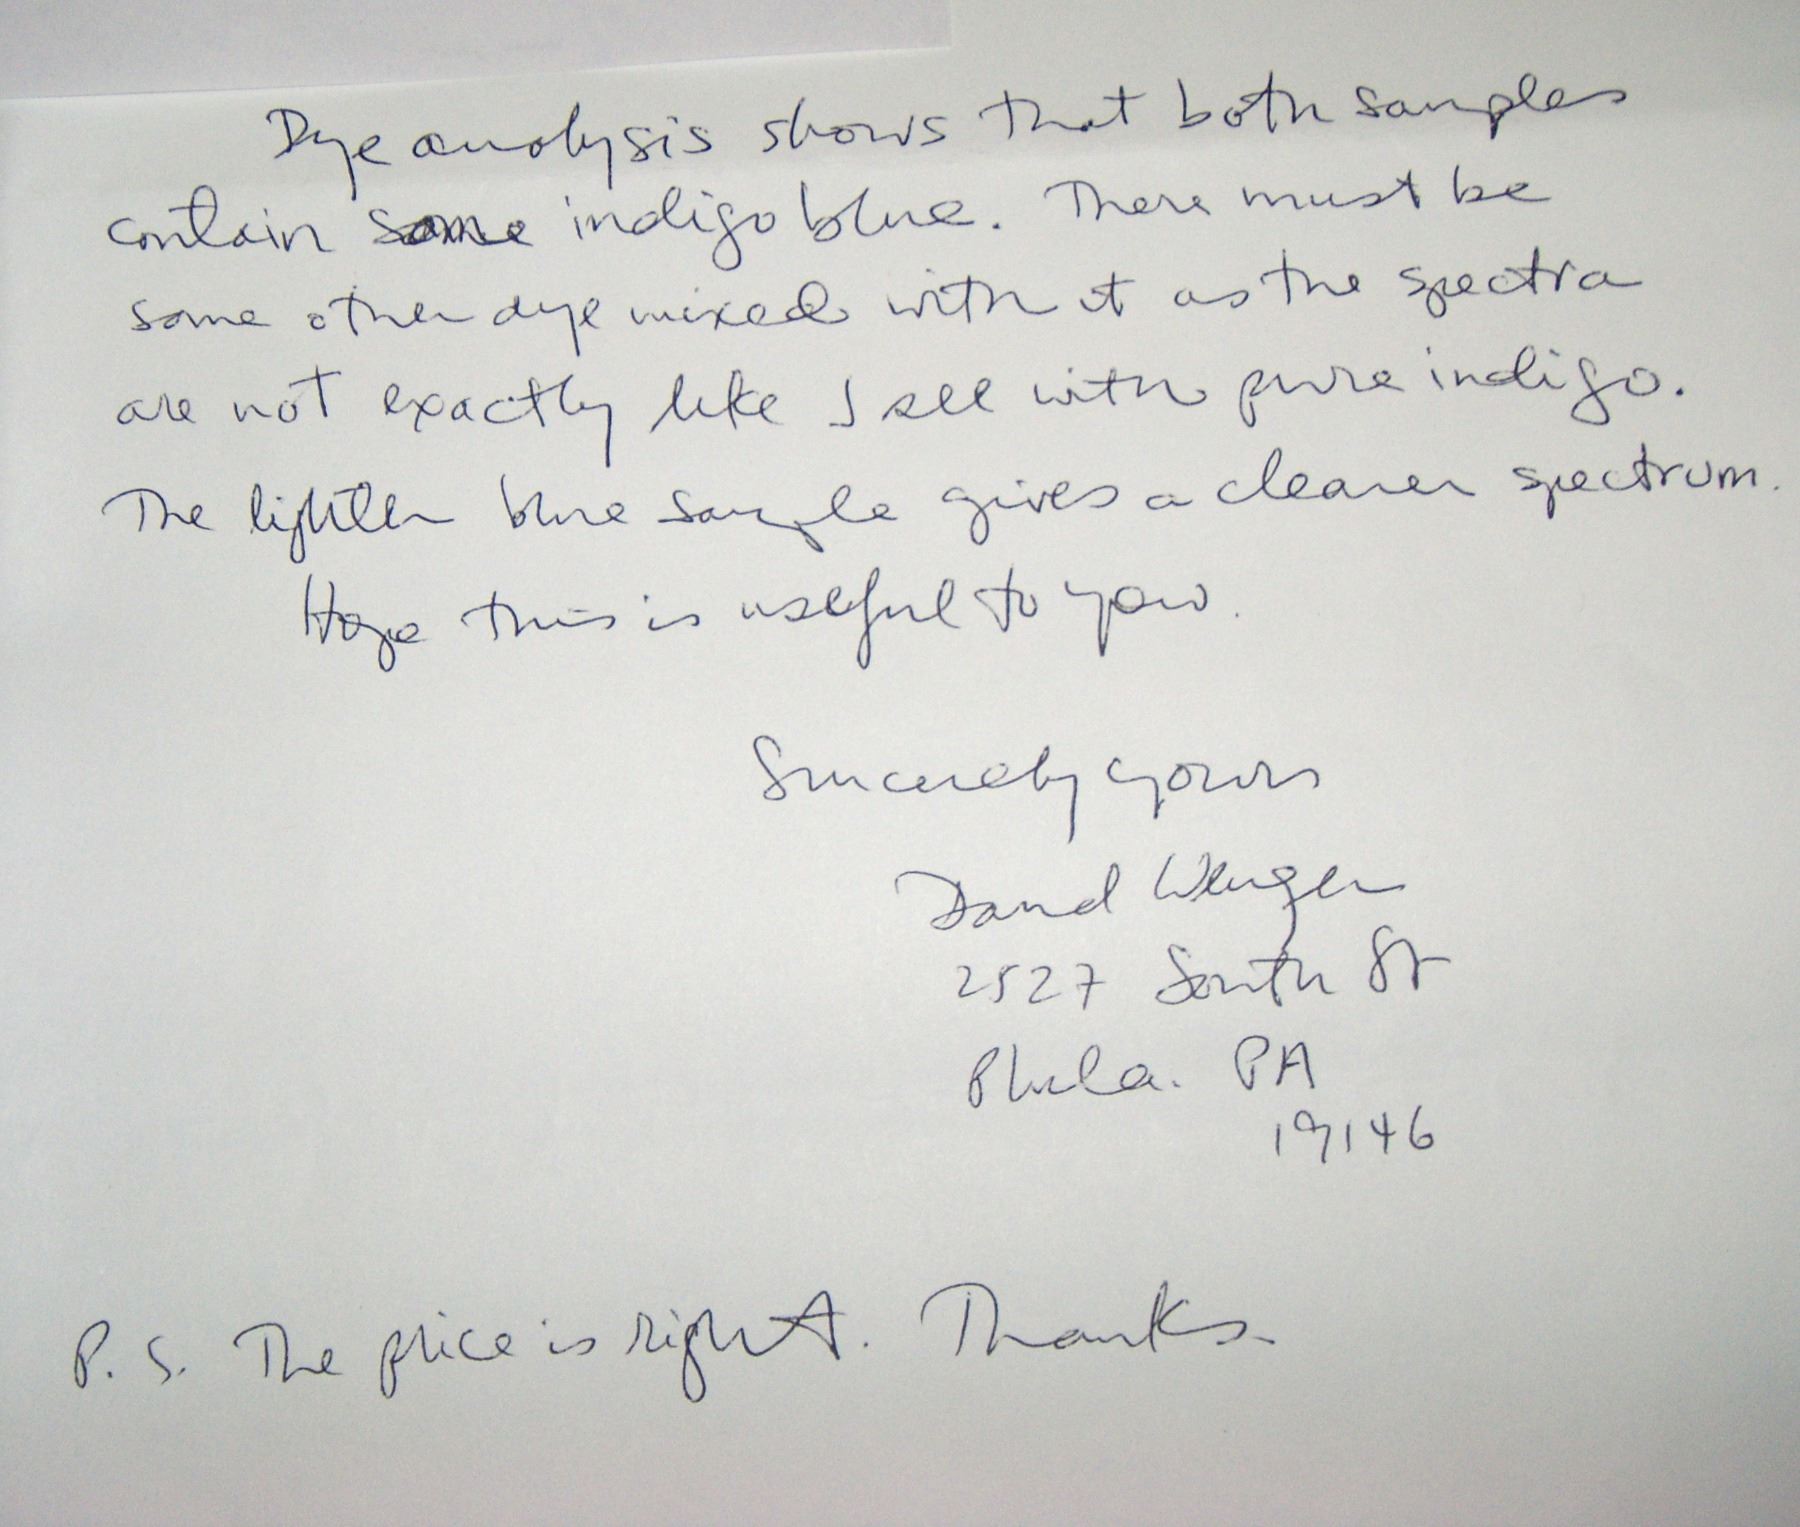 Dye analysis shows that both samples
contain some indigo blue. There must be
some other dye mixed with it as the spectra
are not exactly like I see with pure indigo.
The lighter blue sample gives a clearer spectrum.
Hope this is useful to you.
Sincerely yours
David Wenger
2527 South St
Phila. PA
19146
P. S. The price is right. Thanks.